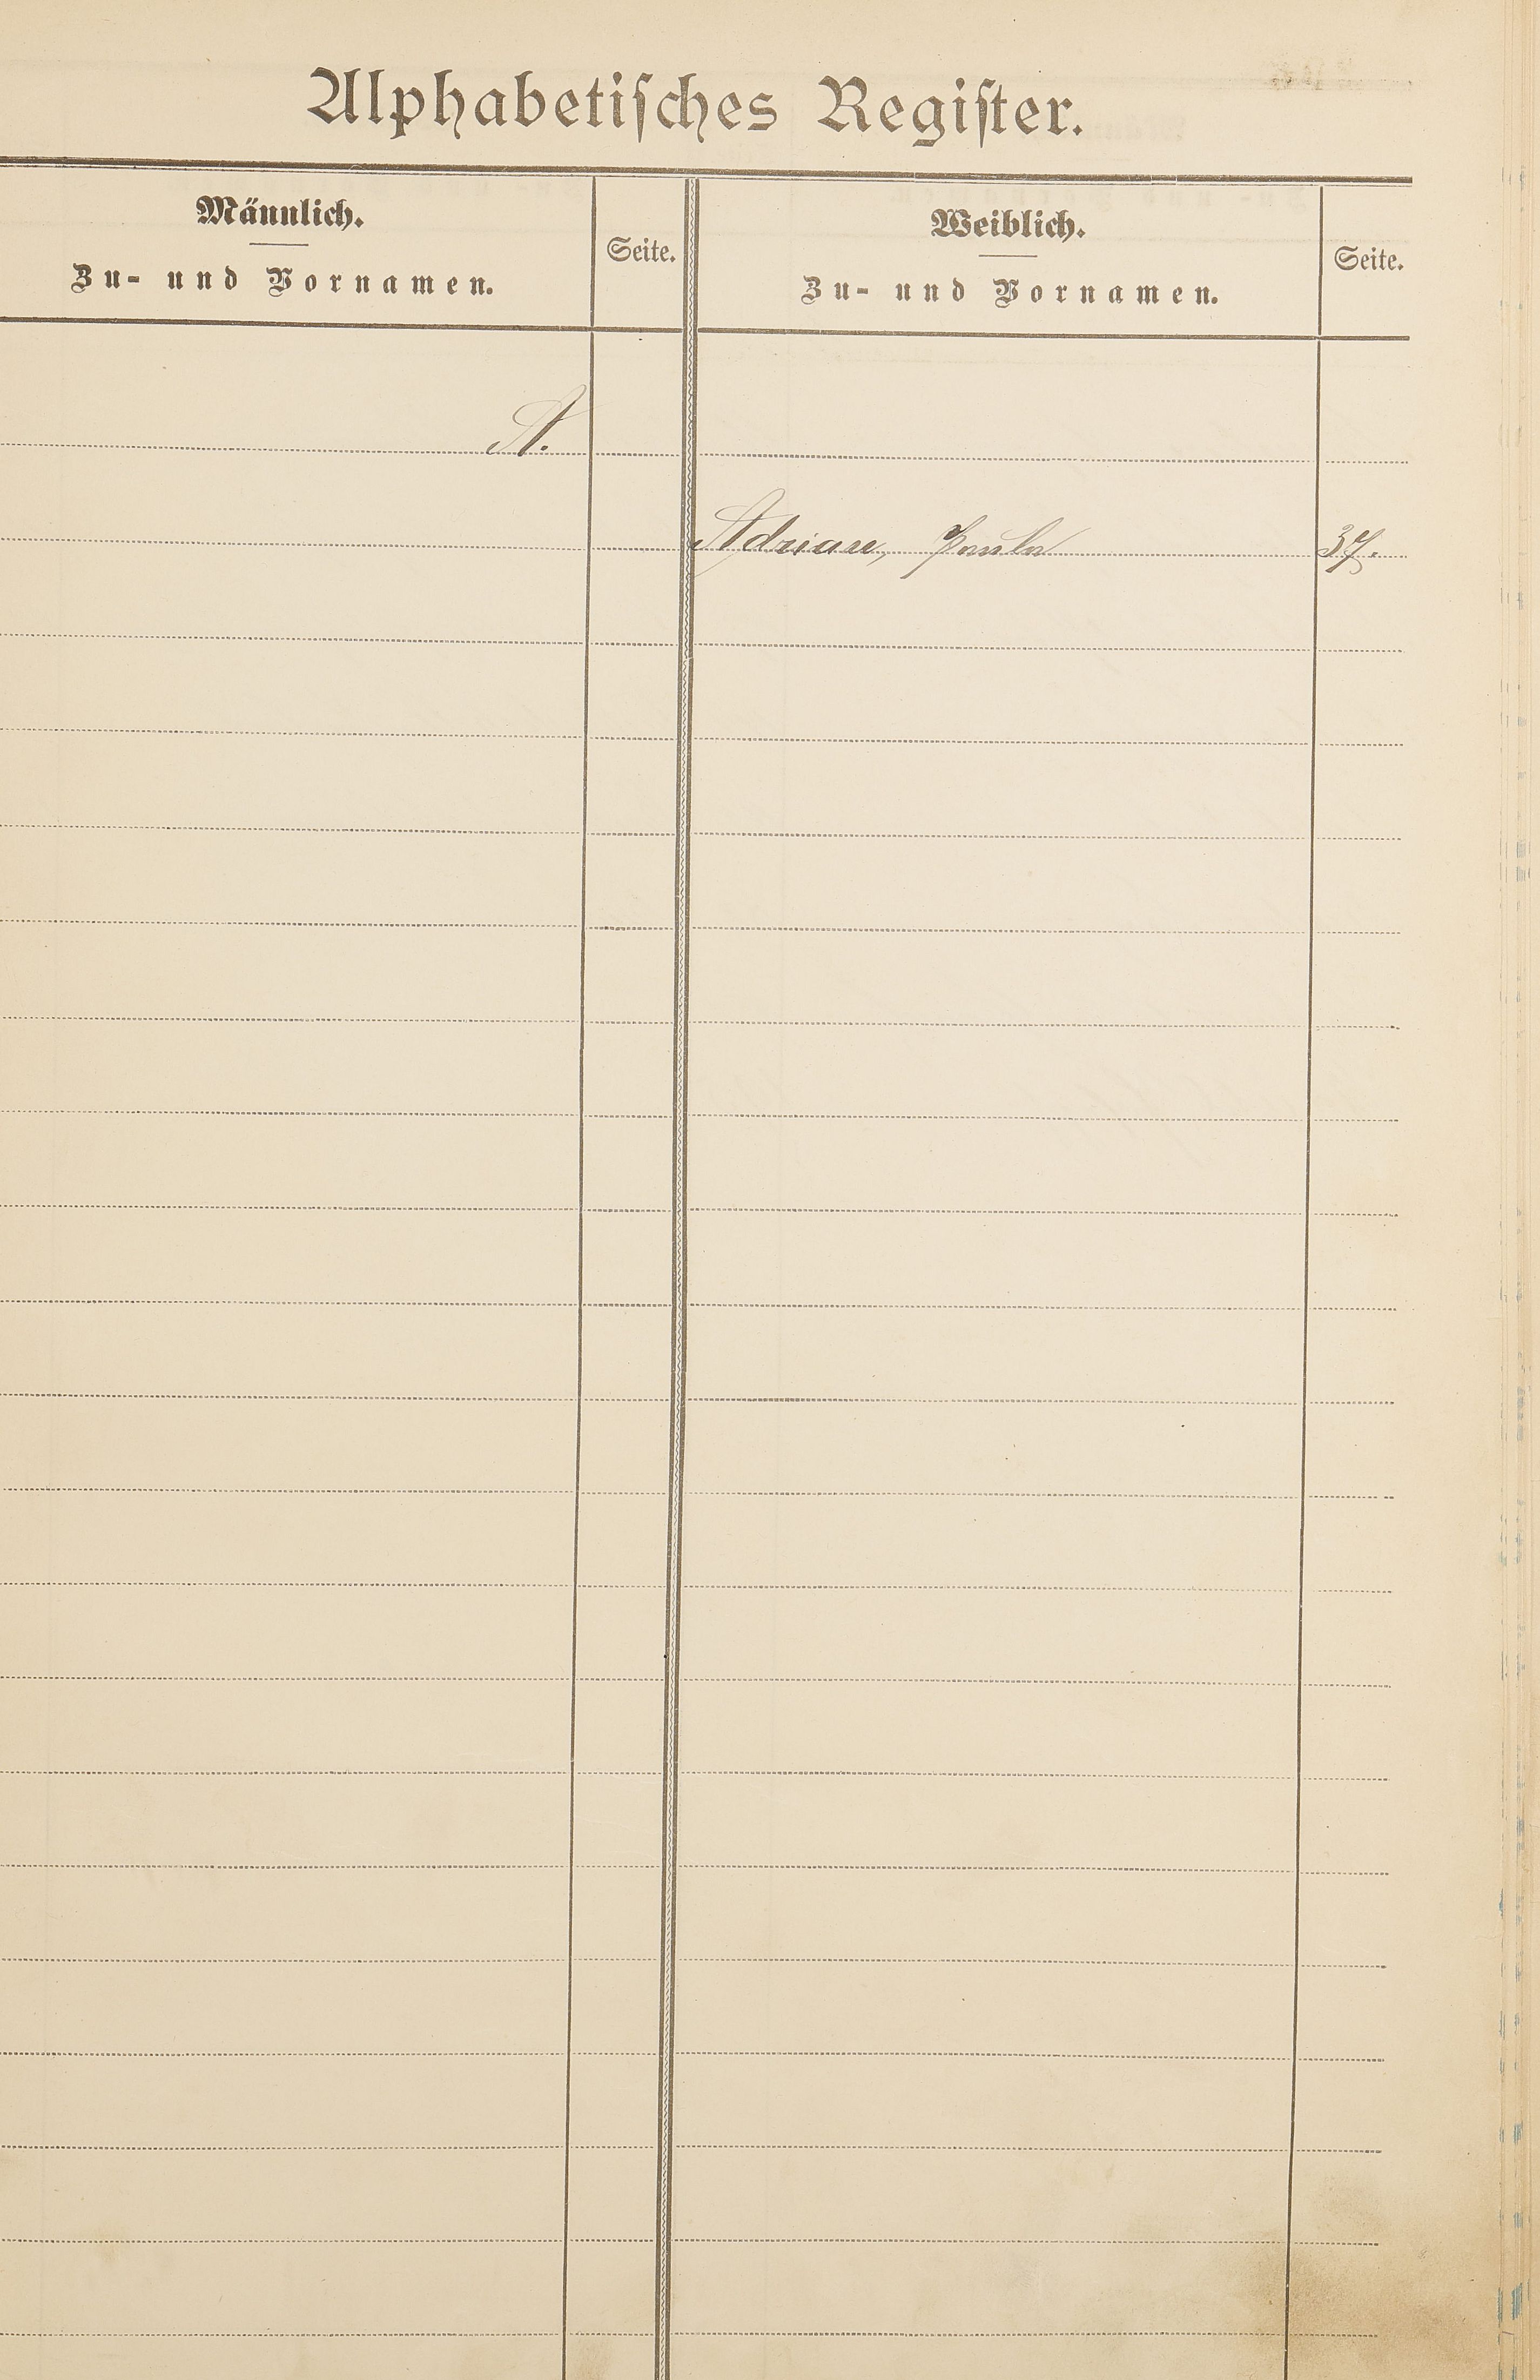 Alphabetisches Register.
Männlich.
Zu- und Vornamen.
Seite.
Weiblich.
Zu- und Vornamen.
Seite.
A.
Adrian, Paula 37.